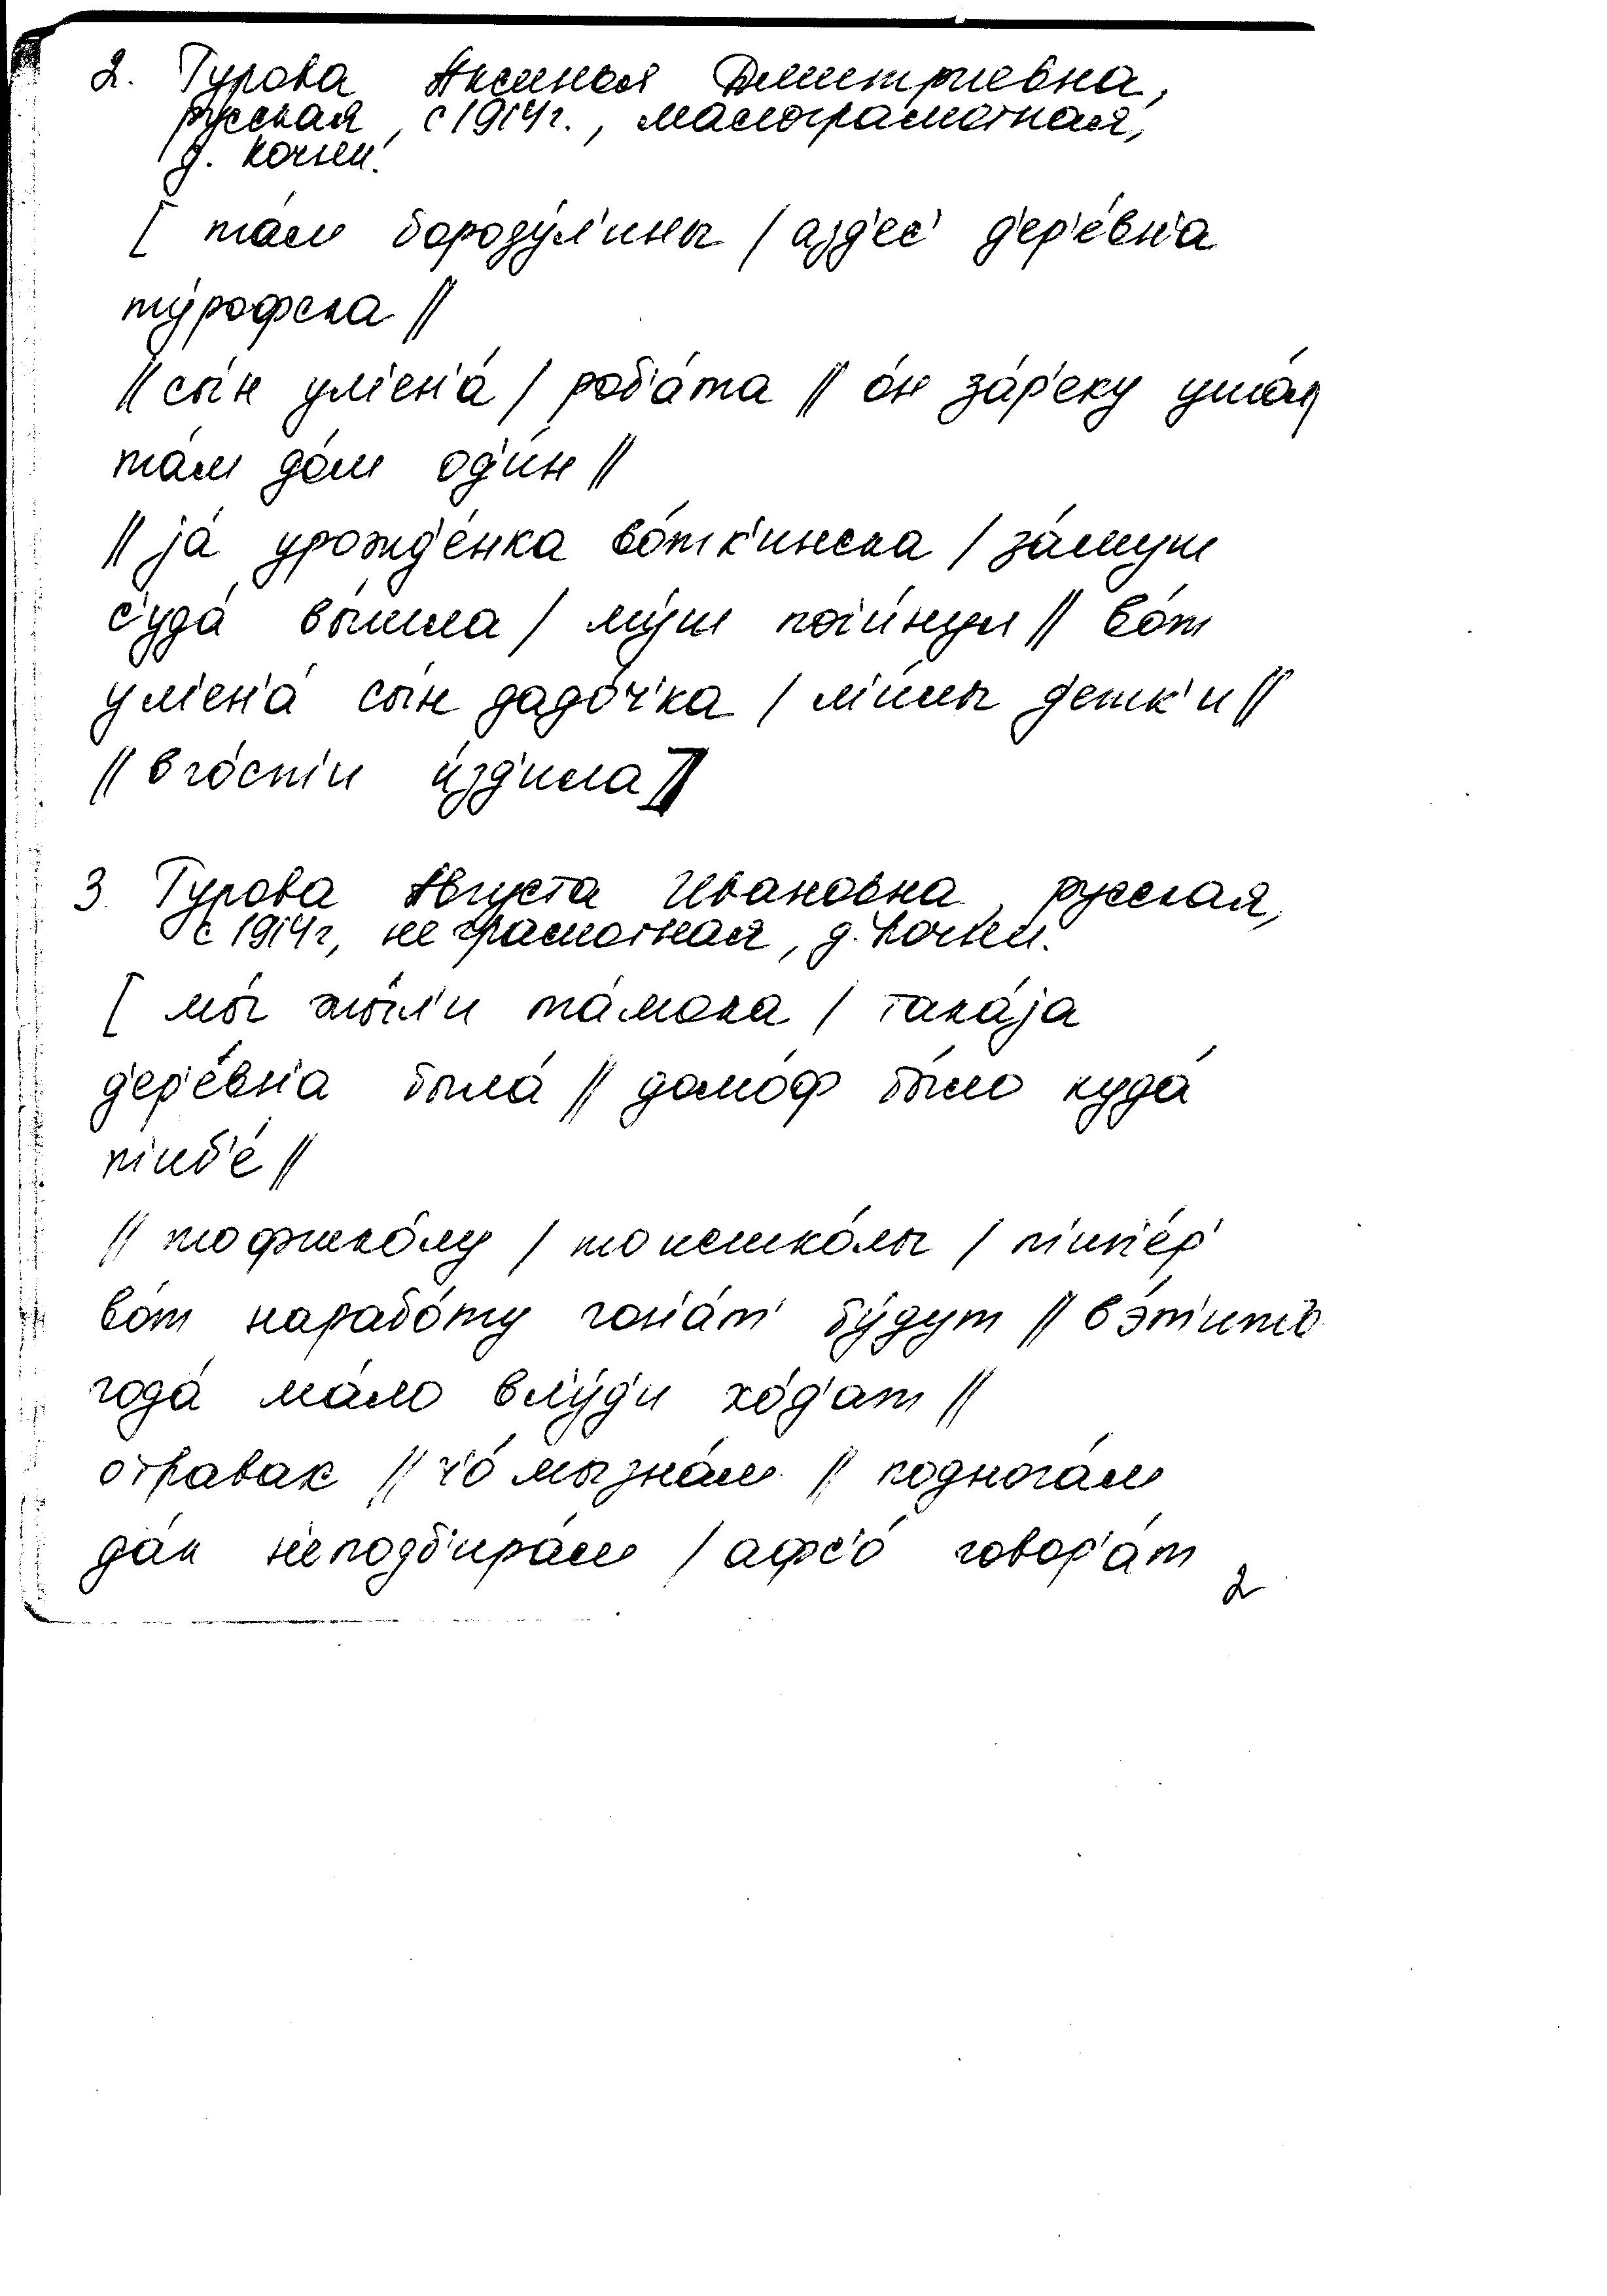 2. Турова Аксинья Дмитриевна,
русская, с 1914 г., малограмотная,
д. Кочни.
[ та́м бороду́л'ины / азд'ес' д'ер'е́вн'а
ту́рофска //
// сы́н ум'ен'а́ / роб'а́та // о́н за́р'еку ушо́л
та́м до́м од'и́н //
// jа́ урожд'е́нка во́тк'инска / за́муш
с'уда́ вы́шла / му́ш пог'и́нул // во́т
ум'ен'а́ сы́н дадо́ч'ка / м'и́лы д'етк'и //
// вго́ст'и и́зд'ила //]
3. Турова Августа Ивановна, русская,
с 1914 г, неграмотная, д. Кочни.
[ мы́ жы́л'и та́мока / така́jа
д'ер'е́вн'а была́ // домо́ф бы́ло куда́
т'иб'е́ //
// тофшко́лу / тоисшко́лы / т'ип'е́р'
во́т нарабо́ту гон'а́т' бу́дут // вэ́т'ито
года́ ма́ло вл'у́д'и хо́д'ат //
отравак // ч'о́ мызна́м // поднога́м
да́к н'еподб'ира́м / афс'о́ говор'а́т
2